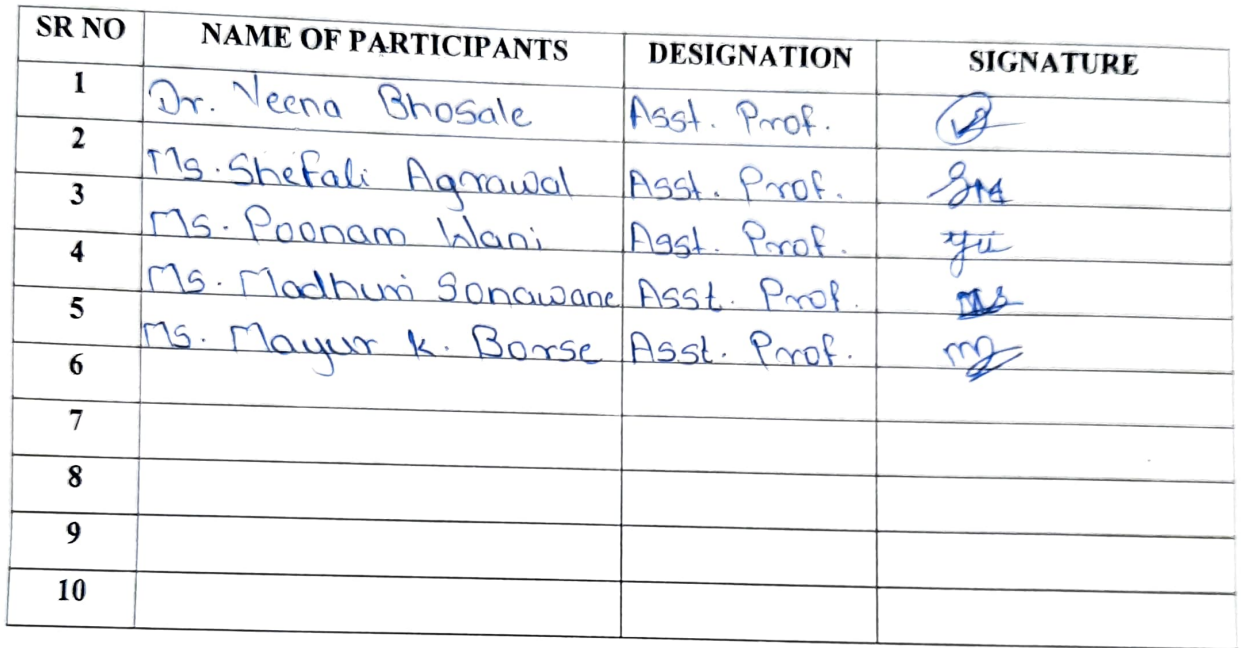 SR NO NAME OF PARTICIPANTS DESIGNATION SIGNATURE
1 Dr. Veena Bhosale Asst. Prof.
2 Ms. Shefali Agrawal Asst. Prof.
3 Ms. Poonam Wani Asst. Prof.
4 Ms. Madhuri Sonawane Asst. Prof.
5 Ms. Mayur K. Borse Asst. Prof.
6
7
8
9
10